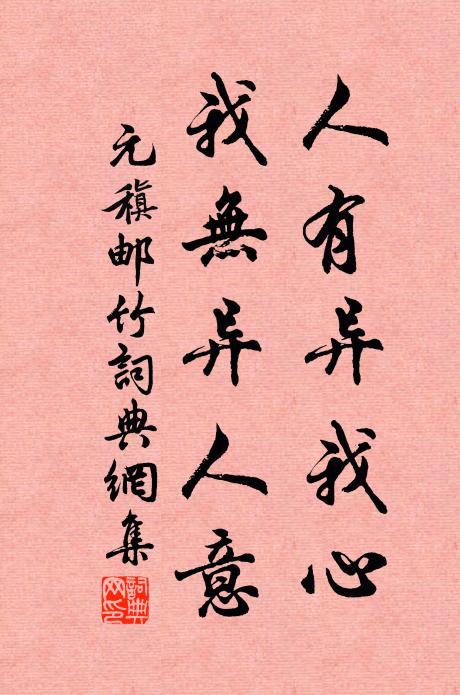 人有异我心
我無异人意
元稹邮竹詞典網集
詞典網印